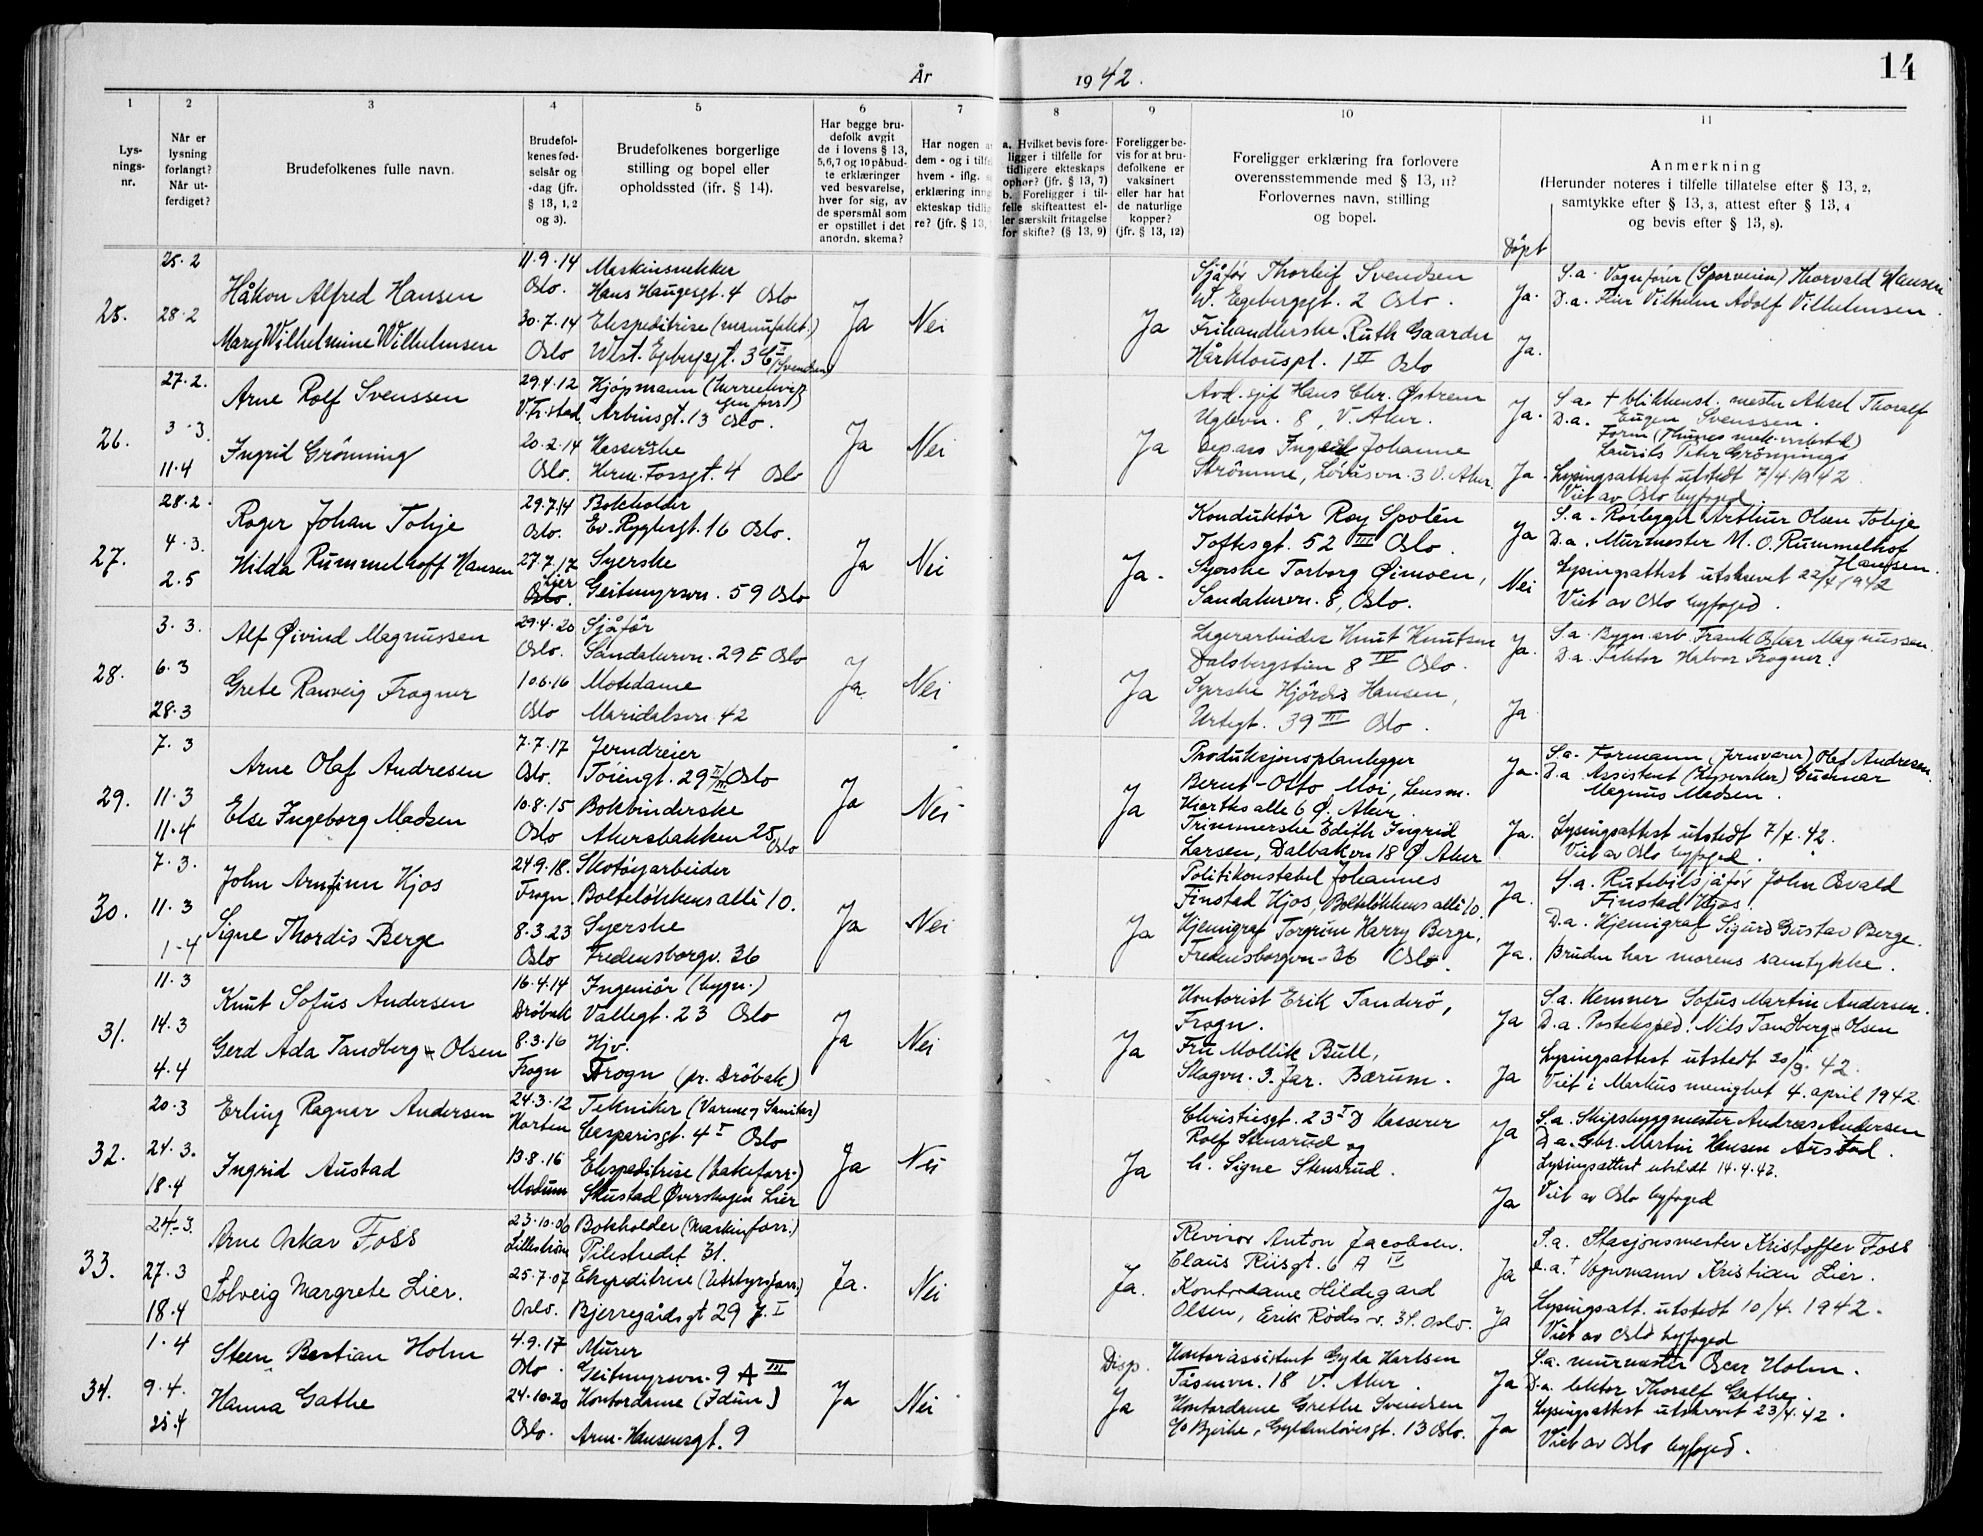 14
År 1942.
1 2 3 4 5 6 7 8 9 10 11
Lys-
nings-
nr.
Når er
lysning
forlangt?
Når ut-
ferdiget?
Brudefolkenes fulle navn.
Brudefol-
kenes fød-
selsår og
-dag (jfr.
§ 13, 1, 2
og 3).
Brudefolkenes borgerlige
stilling og bopel eller
opholdssted (jfr. § 14).
Har begge bru-
defolk avgit
de i lovens § 13,
5,6,7 og 10 påbud-
te erklæringer
ved besvarelse,
hver for sig, av
de spørsmål som
er opstillet i det
anordn. skema?
Har nogen a
dem - og i tilf
hvem - iflg.
erklæring inng
ekteskap tidlig
re? (jfr. § 13,
a. Hvilket bevis fore-
ligger i tilfelle for
tidligere ekteskaps
ophør? (jfr. § 13, 7)
b. Foreligger i til-
felle skifteattest el-
ler særskilt fritagelse
for skifte? (§ 13, 9)
Foreligger be-
vis for at bru-
defolkene er
vaksinert
eller har hat
de naturlige
kopper?
(jfr. § 13, 12)
Foreligger erklæring fra forlovere
overensstemmende med § 13, 11?
Forlovernes navn, stilling
og bopel.
Anmerkning
(Herunder noteres i tilfelle tillatelse efter § 13, 2,
samtykke efter § 13, 3, attest efter § 13, 4
og bevis efter § 13, 8).
Döpt
25.
25.2
28.2
Håkon Alfred Hansen
Mary Wilhelmine Wilhelmsen
11.9.14
Oslo.
30.7.14
Oslo
Maskinsnekker
Hans Haugesgt. 4 Oslo
Ekspeditrise (manufakt.)
West. Egebergsgt. 3
(Svendsen)
Ja
Nei
Ja
Sjåför Thorleif Svendsen
W. Egebergsgt. 2 Oslo.
Frihandlerske Ruth Gaarder
Hårklouspl. 1 II Oslo
Ja.
Ja.
S.a. Vognfører (Sporveien) Thorvald Hansen
D.a. Vilhelm Adolf Vilhelmsen.
26.
27.2.
3.3.
11.4
Arne Rolf Svenssen
Ingrid Grönning
29.4.12
V.Fr.stad
20.2.14
Oslo.
Kjöpmann
Arbinsgt. 13 Oslo.
Kasserske
Herm. Fossgt. 4 Oslo
Ja
Nei
Ja
Avd. sjef Hans Chr. Østrem
Uglevn. 8, V. Aker.
Johanne
Strömme, Lövåsvn. 3 V. Aker.
Ja.
Ja.
S.a. † blikkensl. mester Aksel Thoralf
Eugen Svenssen.
D.a. Form (Thunes mek. verksted)
Laurits Peter Grönning.
Lysingsattest utstedt 7/4 1942
Viet av Oslo byfoged
27.
28.2.
4.3.
2.5
Roger Johan Tobje
Hilda Rummelhoff Hansen
29.7.14
Oslo.
27.7.17
Lier
Oslo.
Bokholder
Ev. Ryghsgt. 16 Oslo.
Syerske
Geitmyrsvn. 59 Oslo
Ja
Nei
Ja.
Konduktör Roy Spolén
Toftesgt. 52 III Oslo.
Syerske Torborg Öimoen,
Sandakervn. 8, Oslo.
Ja
Nei
S.a. Rörlegger Arthur Olsen Tobje
D.a. Murmester M.O. Rummelhof
Hansen.
Lysingsattest utskrevet 22/4 1942
Viet av Oslo byfoged.
28.
3.3.
6.3
28.3
Alf Øivind Magnussen
Grete Ranveig Frogner
29.4.20
Oslo.
10.6.16
Oslo
Sjåför
Sandakervn. 29 E Oslo
Motedame
Maridalsvn. 42
Ja
Nei
Ja
Lagerarbeider Knut Knutsen
Dalsbergstien 8 IV Oslo.
Syerske Hjördis Hansen,
Urtegt. 39 III Oslo.
Ja.
Ja
S.a. Bygn.arb. Frank Oskar Magnussen.
D.a. Faktor Halvor Frogner.
29.
7.3
11.3
11.4
Arne Olaf Andresen
Else Ingeborg Madsen
7.7.17
Oslo.
10.8.15
Oslo
Jerndreier
Töiengt. 29 I/III Oslo
Bokbinderske
Akersbakken 25 Oslo
Ja
Nei
Ja
Produksjonsplanlegger
Bernt-Otto Moi, Lensm.
Hiorths alle 6 Ø. Aker.
Trimmerske Edith Ingrid
Larsen, Dalbakvn 18 Ø Aker
Ja.
Ja.
S.a. Formann (Jernvarer) Olaf Andresen.
D.a. Assistent (Lysverker) Gunnar
Magnus Madsen.
Lysingsattest utstedt 7/4.42.
Viet av Oslo byfoged.
30.
7.3.
11.3
1.4
John Arnfinn Kjos
Signe Thordis Berge
24.9.18.
Frogn.
8.3.23
Oslo
Skotöyarbeider
Bolteløkkens allé 10.
Syerske
Fredensborgv. 36
Ja
Nei
Ja
Politikonstabel Johannes
Finstad Kjos, Bolteløkkens allé 10.
Kjemigraf Torgrim Harry Berge,
Fredensborgvn. 36 Oslo.
Ja.
Ja.
S.a. Rutebilsjåför John Osvald
Finstad Kjos.
D.a. Kjemigraf Sigurd Gustav Berge.
Bruden har morens samtykke.
31.
11.3
14.3
4.4
Knut Sofus Andersen
Gerd Ada Tandberg-Olsen
16.4.14
Dröbak
8.3.16
Frogn
Ingeniör (bygn.)
Vallegt. 23 Oslo
Hjv.
Frogn (pr. Dröbak)
Ja
Nei
Ja
Kontorist Erik Tanderö,
Frogn.
Fru Mollik Bull,
Skogvn. 3. Jar. Bærum.
Ja
Ja
S.a. Kemner Sofus Martin Andersen.
D.a. Posteksped. Nils Tandberg-Olsen
Lysingsattest utstedt 20/3.42.
Viet i Markus menighet 4. april 1942.
32.
20.3
24.3.
18.4
Erling Ragnar Andersen
Ingrid Austad
24.3.12
Horten
13.8.16
Modum
Tekniker (Varme og Sanitær)
Casparisgt. 4 I Oslo
Ekspeditrise (bakeforr.)
Skustad Øverskogen Lier
Ja
Nei
Ja
Christiesgt. 23 I D Kasserer
Rolf Stensrud og
h. Signe Stensrud.
Ja
Ja
S.a. Skipsbyggmester Andreas Andersen
D.a. Gbr. Martin Hansen Austad.
Lysingsattest utstedt 14.4.42.
Viet av Oslo byfoged
33.
24.3.
27.3
18.4
Arne Oskar Foss
Solveig Margrete Lier.
23.10.06
Lilleström
25.7.07
Oslo.
Bokholder (Maskinforr.)
Pilestredet 31.
Ekspeditrise (Utstyrsforr.)
Bjerregårdsgt 29 J. I
Ja.
Nei
Ja.
Revisor Anton Jacobsen.
Claus Riisgt. 6 A IV
Kontordame Hildegard
Olsen, Erik Rödes v. 31. Oslo.
Ja
Ja
S.a. Stasjonsmester Kristoffer Foss
D.a. † Vognmann Kristian Lier.
Lysingsatt. utstedt 10/4. 1942.
Viet av Oslo byfoged
34.
1.4
9.4.
25.4
Steen Bastian Holm
Hanna Gathe
4.9.17
Oslo.
24.10.20
Oslo.
Murer
Geitmyrsvn. 9 A III
Kontordame (Idun)
Arne-Hansensgt. 9
Ja
Nei
Disp.
Ja
Kontorassistent Gyda Karlsen
Tåsenvn. 18 V. Aker.
Kontordame Grethe Svendsen
c/o Bjerke, Gyldenløvesgt. 13 Oslo.
Ja
Ja
S.a. murmester Oscar Holm.
D.a. lektor Thoralf Gathe.
Lysingsattest utskrevet 23/4.42.
Viet av Oslo byfoged.